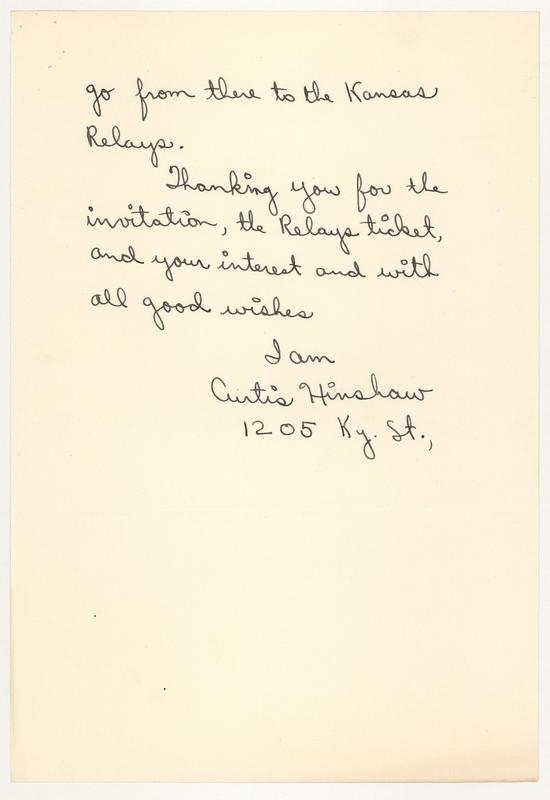 go from there to the Kansas
Relays.
Thanking you for the
invitation, the Relays ticket,
and your interest and with
all good wishes
I am
Curtis Hinshaw
1205 Ky. St.,